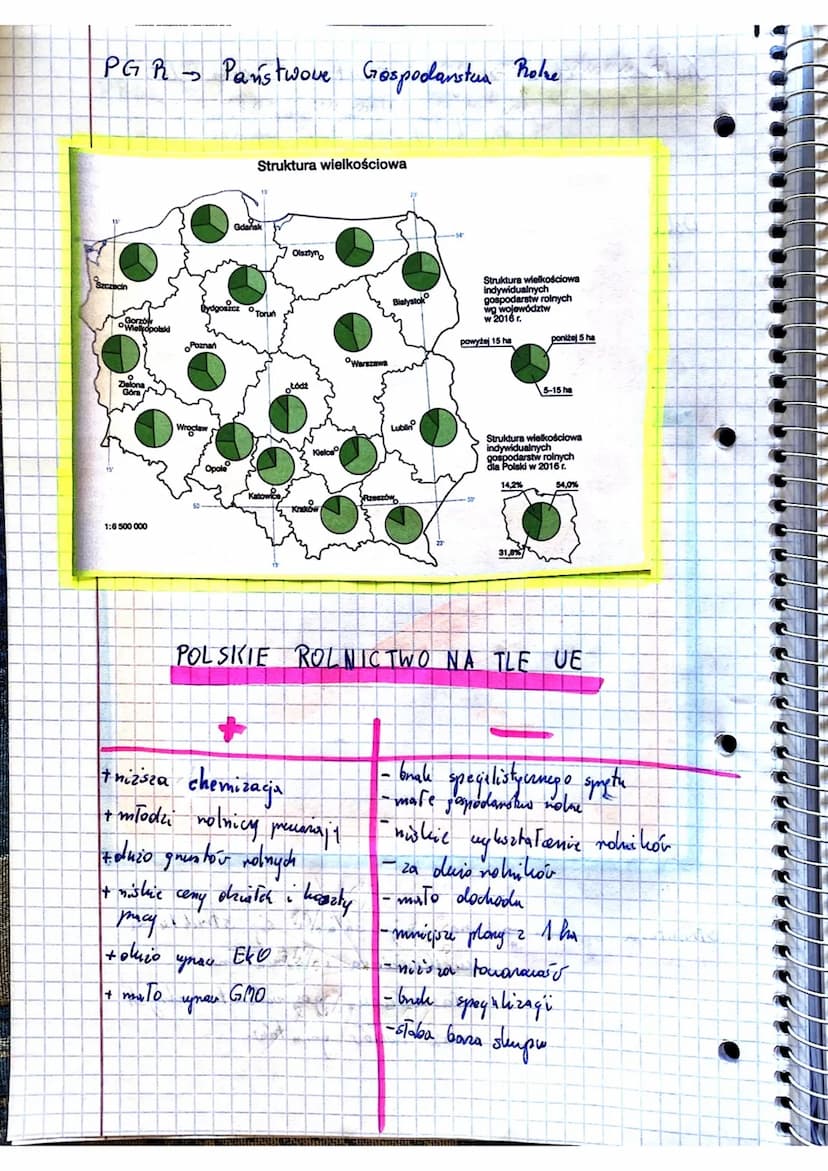 PGR → Państwowe Gospodarstwa Rolne
Struktura wielkościowa
15°
23°
Gdańsk
54°
Olsztyn
15°
Szczecin
Białystok
Bydgoszcz
Toruń
Gorzów
Wielkopolski
Poznań
Warszawa
Zielona
Góra
Łódź
Wrocław
Lublin
Opole
Kielce
15°
Katowice
Kraków
Rzeszów
50°
1:6 500 000
23°
Struktura wielkościowa
indywidualnych
gospodarstw rolnych
wg województw
w 2016 r.
powyżej 15 ha
poniżej 5 ha
5–15 ha
Struktura wielkościowa
indywidualnych
gospodarstw rolnych
dla Polski w 2016 r.
14,2% 54,0%
31,8%
POLSKIE ROLNICTWO NA TLE UE
+
−
+ niższa chemizacja
+ młodzi rolnicy przeważają
+ dużo gruntów rolnych
+ niskie ceny działek i koszty
pracy
+ dużo upraw EKO
+ mało upraw GMO
- brak specjalistycznego sprzętu
- małe gospodarstwa rolne
- niskie wykształcenie rolników
- za dużo rolników
- mało dochodu
- mniejsze plony z 1 ha
- niższa towarowość
- brak specjalizacji
- słaba baza skupu